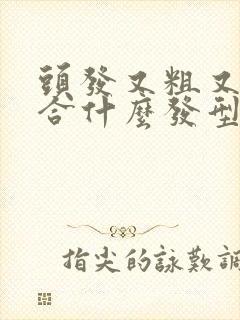 頭發又粗又
合什麼發型
指尖的詠歎調